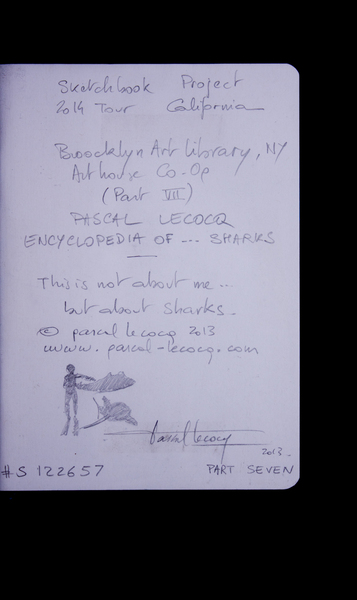 Sketchbook Project
2014 Tour California
Broocklyn Art Library, NY
Art house Co-Op
(Part VII)
PASCAL LECOCQ
ENCYCLOPEDIA OF ... SHARKS
This is not about me...
but about sharks.
© pascal lecocq 2013
www.pascal-lecocq.com
Pascal Lecocq
2013.
#S 122657 PART SEVEN